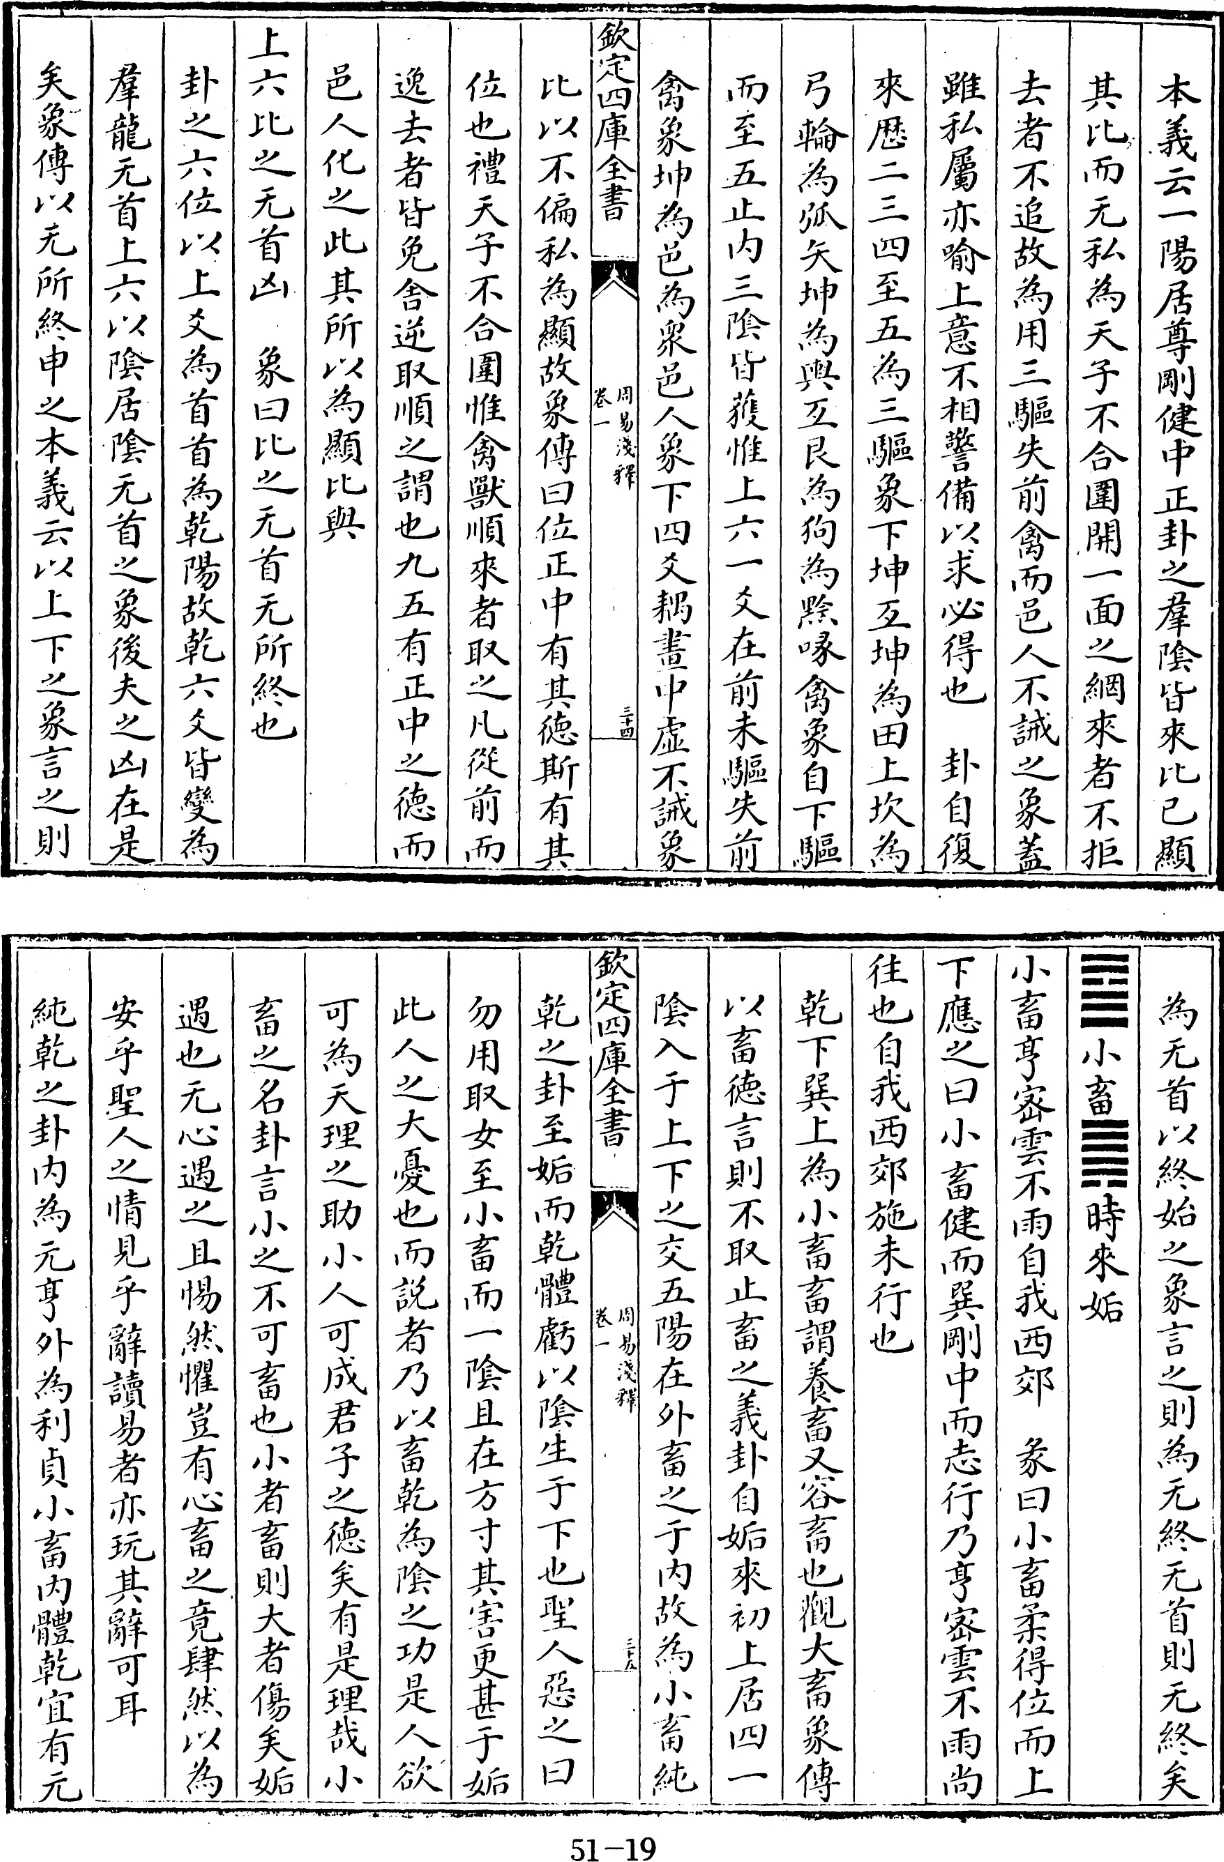 本義云一陽居尊剛健中正卦之羣陰皆來比已顯
其比而无私為天子不合圍開一面之網來者不拒
去者不追故為用三驅失前禽而邑人不誡之象蓋
雖私屬亦喻上意不相警備以求必得也　卦自復
來歴二三四至五為三驅象下坤互坤為田上坎為
弓輪為弧矢坤為輿互艮為狗為黔喙禽象自下驅
而至五止内三陰皆獲惟上六一爻在前未驅失前
禽象坤為邑為衆邑人象下四爻耦畫中虛不誡象
欽定四庫全書
周易淺釋
卷一
三十四
比以不偏私為顯故象傳曰位正中有其德斯有其
位也禮天子不合圍惟禽獸順來者取之凡從前而
逸去者皆免舍逆取順之謂也九五有正中之德而
邑人化之此其所以為顯比與
上六比之无首凶　象曰比之无首无所終也
卦之六位以上爻為首首為乾陽故乾六爻皆變為
羣龍无首上六以陰居陰无首之象後夫之凶在是
矣象傳以无所終申之本義云以上下之象言之則
為无首以終始之象言之則為无終无首則无終矣
䷈小畜䷫時來姤
小畜亨密雲不雨自我西郊　彖曰小畜柔得位而上
下應之曰小畜健而巽剛中而志行乃亨密雲不雨尚
往也自我西郊施未行也
乾下巽上為小畜畜謂養畜又容畜也觀大畜象傳
以畜德言則不取止畜之義卦自姤來初上居四一
陰入于上下之交五陽在外畜之于内故為小畜純
欽定四庫全書
周易淺釋
卷一
三十五
乾之卦至姤而乾體虧以陰生于下也聖人惡之曰
勿用取女至小畜而一陰且在方寸其害更甚于姤
此人之大憂也而説者乃以畜乾為陰之功是人欲
可為天理之助小人可成君子之德矣有是理哉小
畜之名卦言小之不可畜也小者畜則大者傷矣姤
遇也无心遇之且惕然懼豈有心畜之竟肆然以為
安乎聖人之情見乎辭讀易者亦玩其辭可耳
純乾之卦内為元亨外為利貞小畜内體乾宜有元
51-19